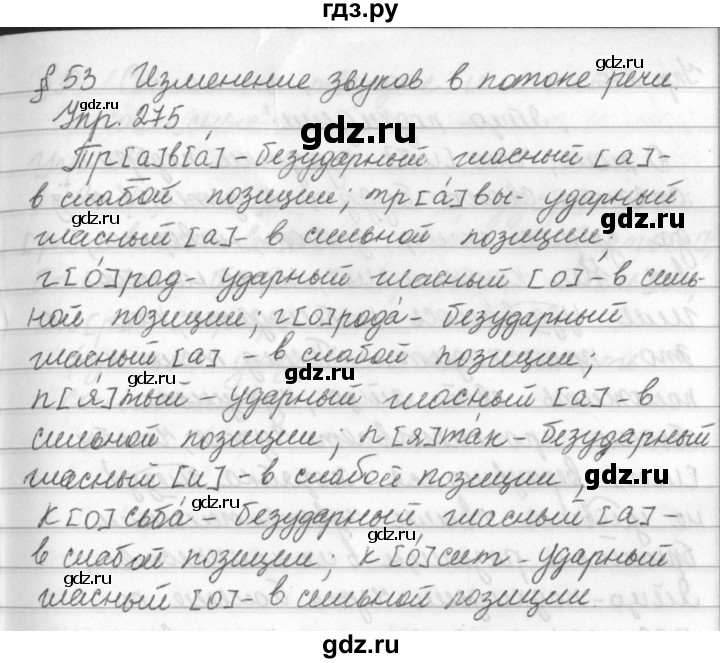 гдз.ру
§ 53 Изменение звуков в потоке речи.
gdz.ru
Упр. 275
gdz.ru
gdz.ru
Тр[а]в[а́] - безударный гласный [а] -
в слабой позиции; тр[а́]вы - ударный
gdz.ru
gdz.ru
гласный [а] - в сильной позиции;
г[о́]род - ударный гласный [о] - в силь-
gdz.ru
ной позиции; г[о]рода́ - безударный
gdz.ru
гласный [а] - в слабой позиции;
gdz.ru
gdz.ru
п[я́]тый - ударный гласный [а] - в
сильной позиции; п[я]та́к - безударный
гласный [и] - в слабой позиции;
gdz.ru
gdz.ru
к[о]сьба́ - безударный гласный [а] -
в слабой позиции; к[о́]сит - ударный
gdz.ru
gdz.ru
гласный [о] - в сильной позиции.
gdz.ru
gdz.ru